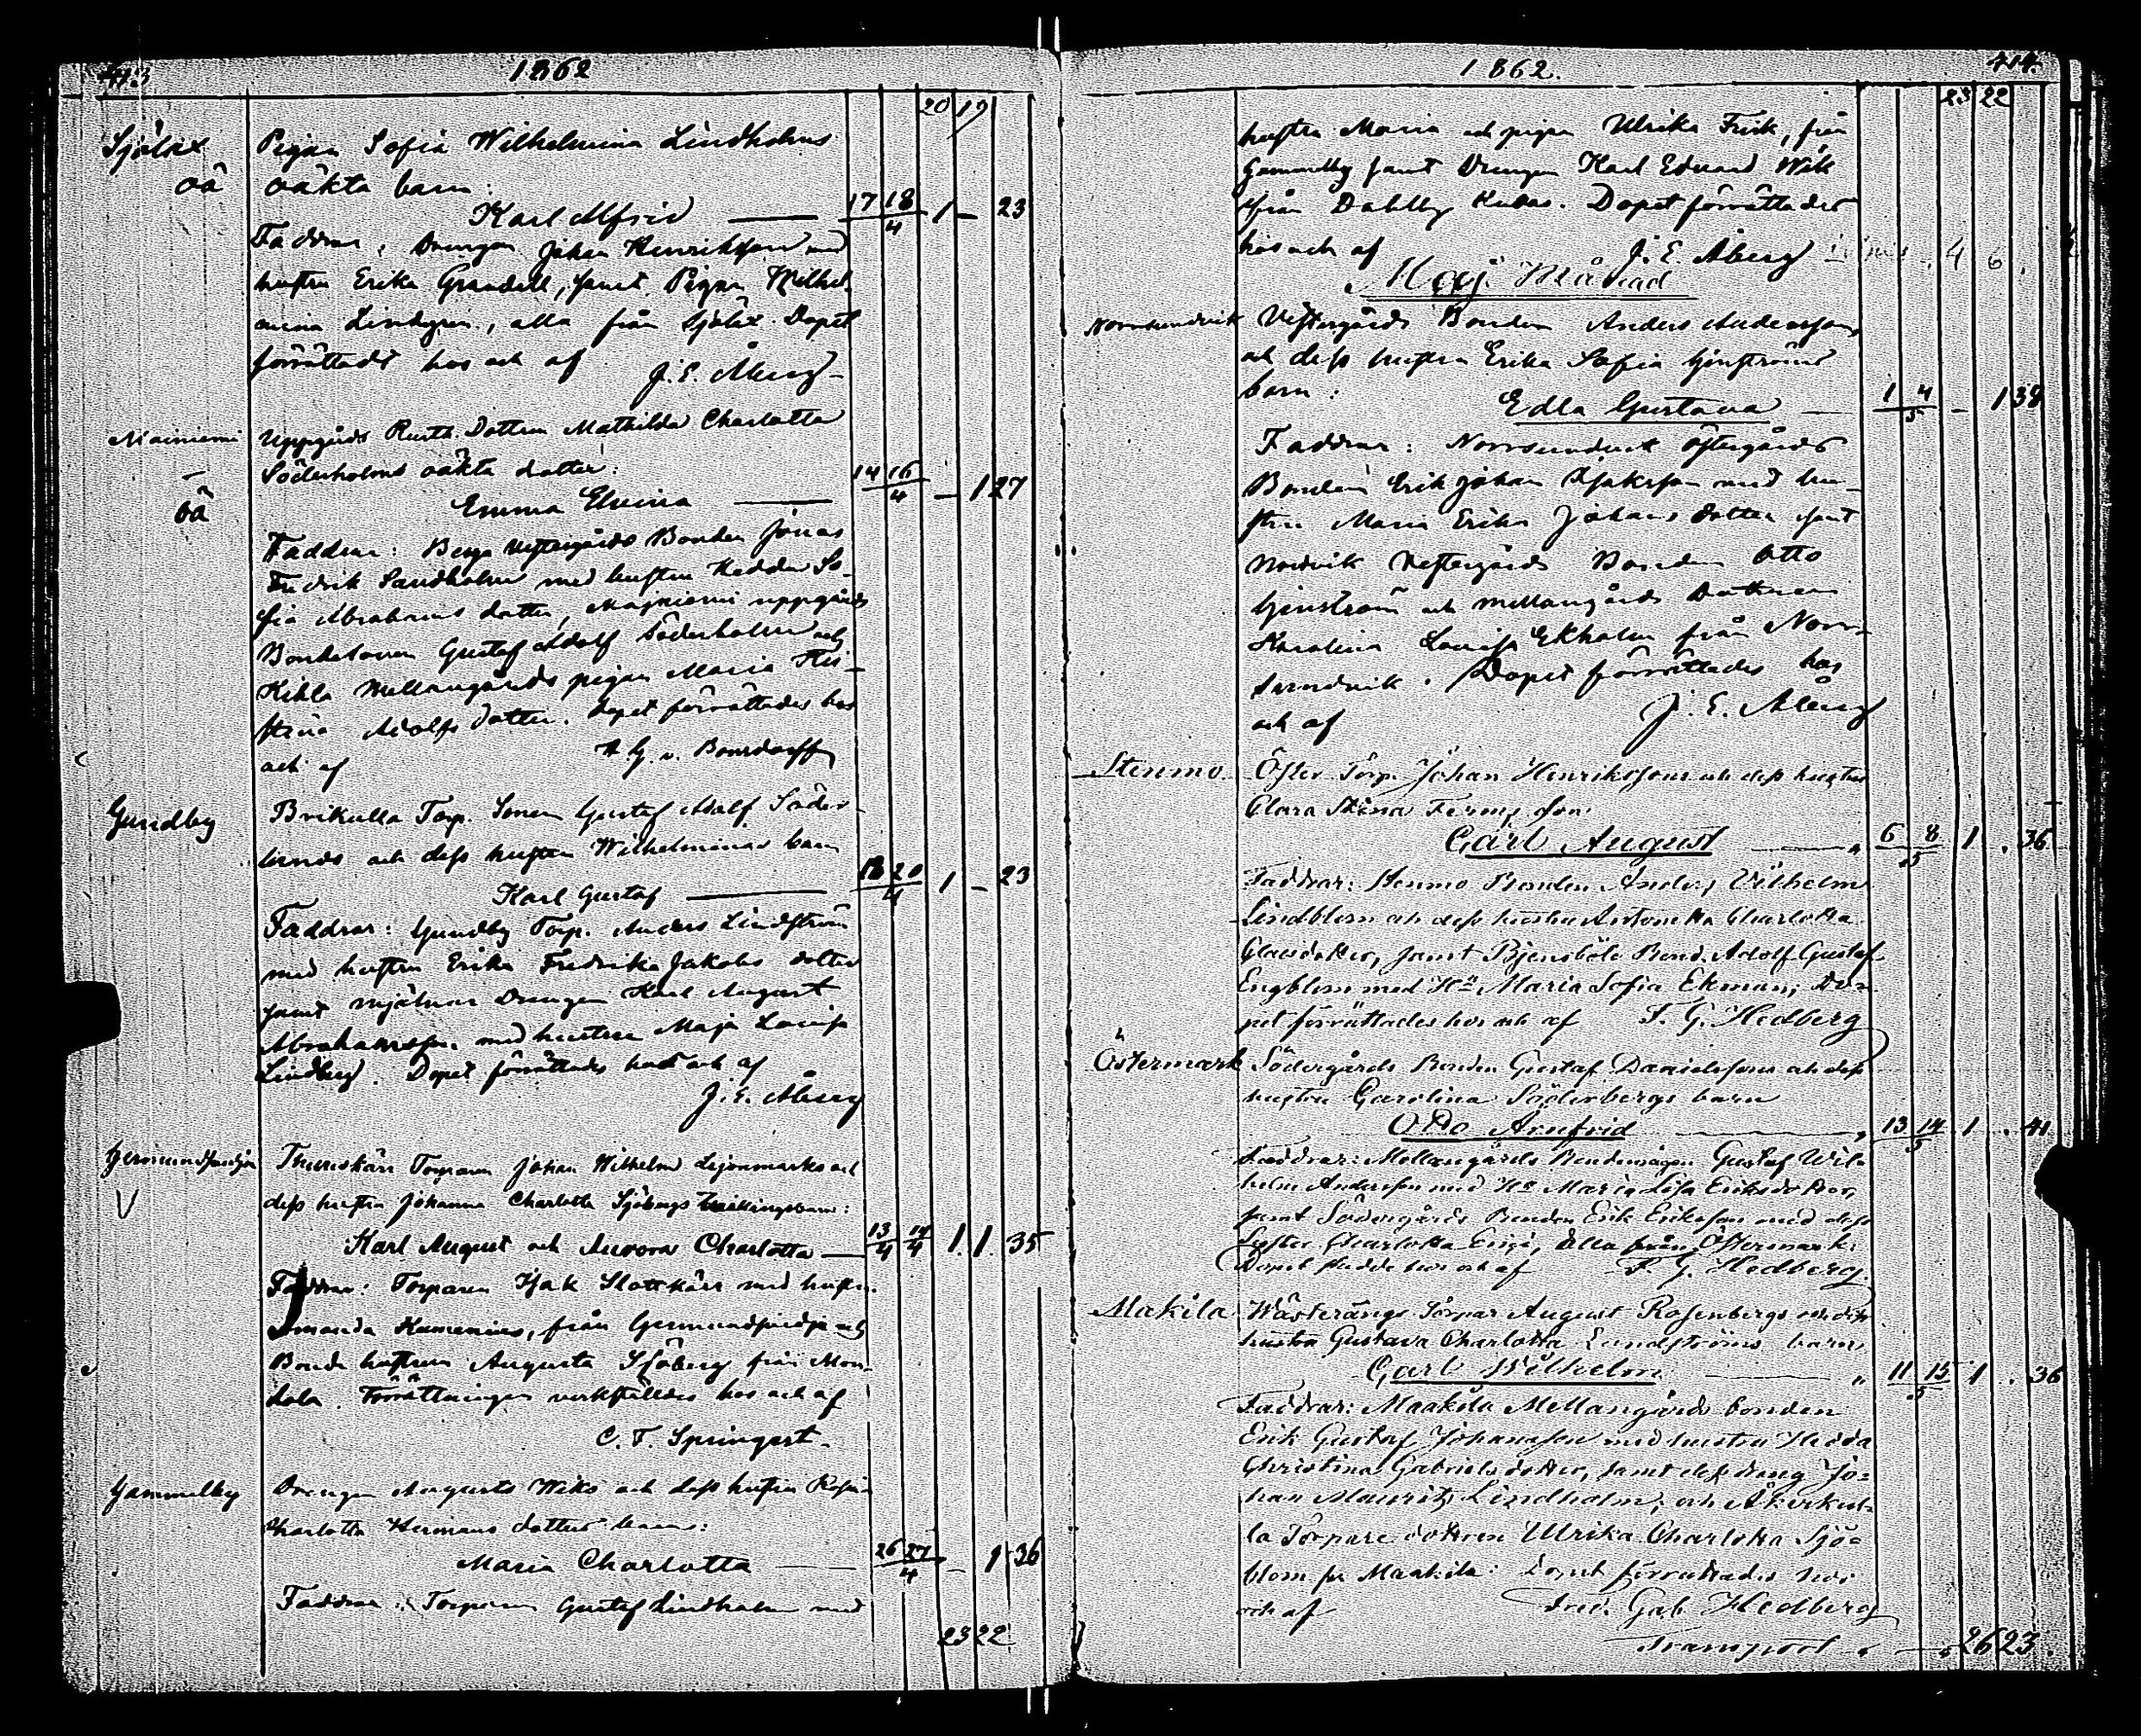 413
1862
20 19
Sjölax
oä
Pigan Sofia Wilhelmina Lindholms
oäkta barn:
Karl Alfrid 17 18/4 1 – 23
Faddrar: Drengen Johan Henriksson med
hustru Erika Grandell, samt Pigan Wilhel-
mina Lindgren, alla från Sjölax. Dopet
förrättades hos och af
J. E. Åberg
Mainiemi
oä
Uppgårds Rusth. Dottren Mathilda Charlotta
Söderholms oäkta dotter:
Emma Elvina 14 16/4 – 1 27
Faddrar: Berga Westergårds Bonden Jonas
Fredrik Sandholm med hustru Hedda So-
fia Abrahams dotter, Majniemi uppgårds
Bondesonen Gustaf Adolf Söderholm och
Kihla Mellangårds pigan Maria Kri-
stina Adolfs dotter. Dopet förrättades hos
och af
A. G. v. Bonsdorff
Gundby
Brikulla Torp. Sonen Gustaf Adolf Söder-
lunds och dess hustru Wilhelminas barn
Karl Gustaf 18 20/4 1 – 23
Faddrar: Gundby Torp. Anders Lindström
med hustru Erika Fredrika Jakobs dotter
samt mjölnare Drengen Karl August
Abrahamsson med hustru Maja Lovisa
Lindberg. Dopet förrättades hos och af
J. E. Åberg
V
Torparen Johan Wilhelm Lejonmarks och
dess hustru Johanna Charlotta Sjöbergs tvillingbarn:
Karl August och Aurora Charlotta 13/4 14/4 1. 1. 35
Faddrar: Torparen Isak Slottkärr med hustru
Amanda Humenius, från och
Bonde hustrun Augusta Sjöberg från Mon-
dola. Förrättningen verkställdes hos och af
C. F. Springert
Gammelby
Drengen Augusts Wiks och dess hustru Rosina
Charlotta Hermans dotters barn:
Maria Charlotta 26 27/4 – 1 36
Faddrar: Torparen Gustaf Lindholm med
23 22
1862.
414.
23 22
hustru Maria och pigan Ulrika Frisk, från
Gammelby samt Drengen Karl Edvard Wik
från Dahlby Kubas. Dopet förrättades
hos och af J. E. Åberg
Maj Månad
Norrsundvik
Westergårds Bonden Anders Anderssons
och dess hustru Erika Sofia Genströms
barn:
Edla Gustava 1 4/5 – 1 38
Faddrar: Norrsundvik Östergårds
Bonden Erik Johan Isaksson med hu-
stru Maria Erika Johans dotter samt
Nordvik Westergårds Bonden Otto
Genström och Mellangårds Dottren
Karolina Lovisa Ekholm från Norr-
sundvik. Dopet förrättades hos
och af J. E. Åberg
Stenmo
Öster Torp. Johan Henrikssons och dess hustru
Clara Stina Ferms son:
Carl August 6 8/5 1 . 36
Faddrar: Stenmo Bonden Anders Vilhelm
Lindblom och dess hustru Antonetta Charlotta
Claesdotter, samt Bjensböle Bond. Adolf Gustaf
Engblom med Hu Maria Sofia Ekman; Do-
pet förrättades hos och af F. G. Hedberg
Östermark
Södergårds Bonden Gustaf Danielssons och dess
hustru Carolina Söderbergs barn
Otto Arnfrid 13 14/5 1 . 41
Faddrar: Mellangårds Bondemågen Gustaf Wil-
helm Andersson med Hu Maria Lisa Eriksdotter,
samt Södergårds Bonden Erik Eriksson med dess
Syster Charlotta, alla från Östermark:
Dopet skedde hos och af F. G. Hedberg.
Makila
Wästerängs Torpar August Rosenbergs och dess
hustru Gustava Charlotta Lundströms barn
Carl Wilhelm 11 15/5 1 . 36
Faddrar: Maakila Mellangårds bonden
Erik Gustaf Johansson med hustru Hedda
Christina Gabrielsdotter, samt dess dräng Jo-
han Mauritz Lindholm, och Åkerkul-
la Torpare dottren Ulrika Charlotta Sjö-
blom fr Maakila: Dopet förrättades hos
och af Fred. Gab Hedberg
Transport 26 23.